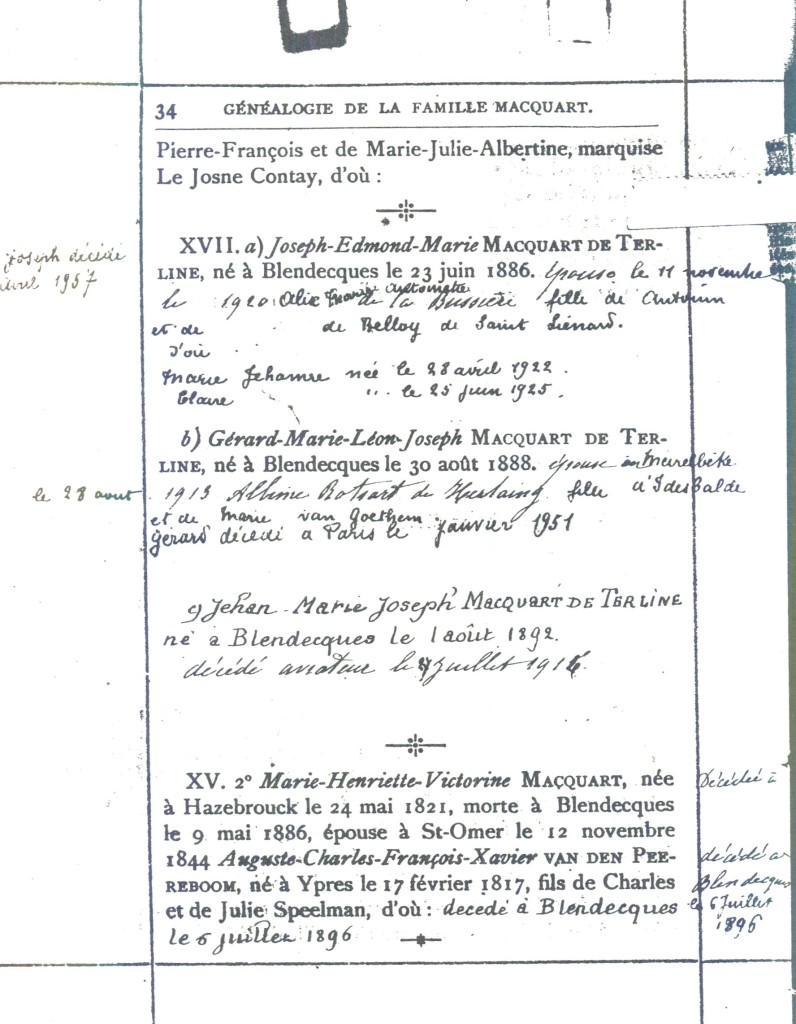 34 GÉNÉALOGIE DE LA FAMILLE MACQUART.
Pierre-François et de Marie-Julie-Albertine, marquise
Le Josne Contay, d'où :
Joseph décédé
avril 1957
XVII. a) Joseph-Edmond-Marie MACQUART DE TER-
LINE, né à Blendecques le 23 juin 1886. épouse le 11 novembre
le 1920 Alix Marie Antoinette de la Bussière fille de Antonin
et de de Belloy de Saint Liénard.
d'où
Marie Jehanne née le 28 avril 1922.
Claire " le 25 juin 1925.
b) Gérard-Marie-Léon-Joseph MACQUART DE TER-
LINE, né à Blendecques le 30 août 1888. épouse Meirelbeke
le 28 aout 1913 Botsart de fille d'Idesbalde
et de Marie van Goethem
Gérard décédé a Paris le janvier 1951
c) Jehan Marie Joseph MACQUART DE TERLINE
né à Blendecques le 1 août 1892.
décédé aviateur le juillet 1916.
XV. 2° Marie-Henriette-Victorine MACQUART, née
Décédée à
à Hazebrouck le 24 mai 1821, morte à Blendecques
le 9 mai 1886, épouse à St-Omer le 12 novembre
1844 Auguste-Charles-François-Xavier VAN DEN PEE-
REBOOM, né à Ypres le 17 février 1817, fils de Charles
et de Julie Speelman, d'où : decedé à Blendecques
le 6 juillet 1896
décédé a
Blendecques
le 6 Juillet
1896